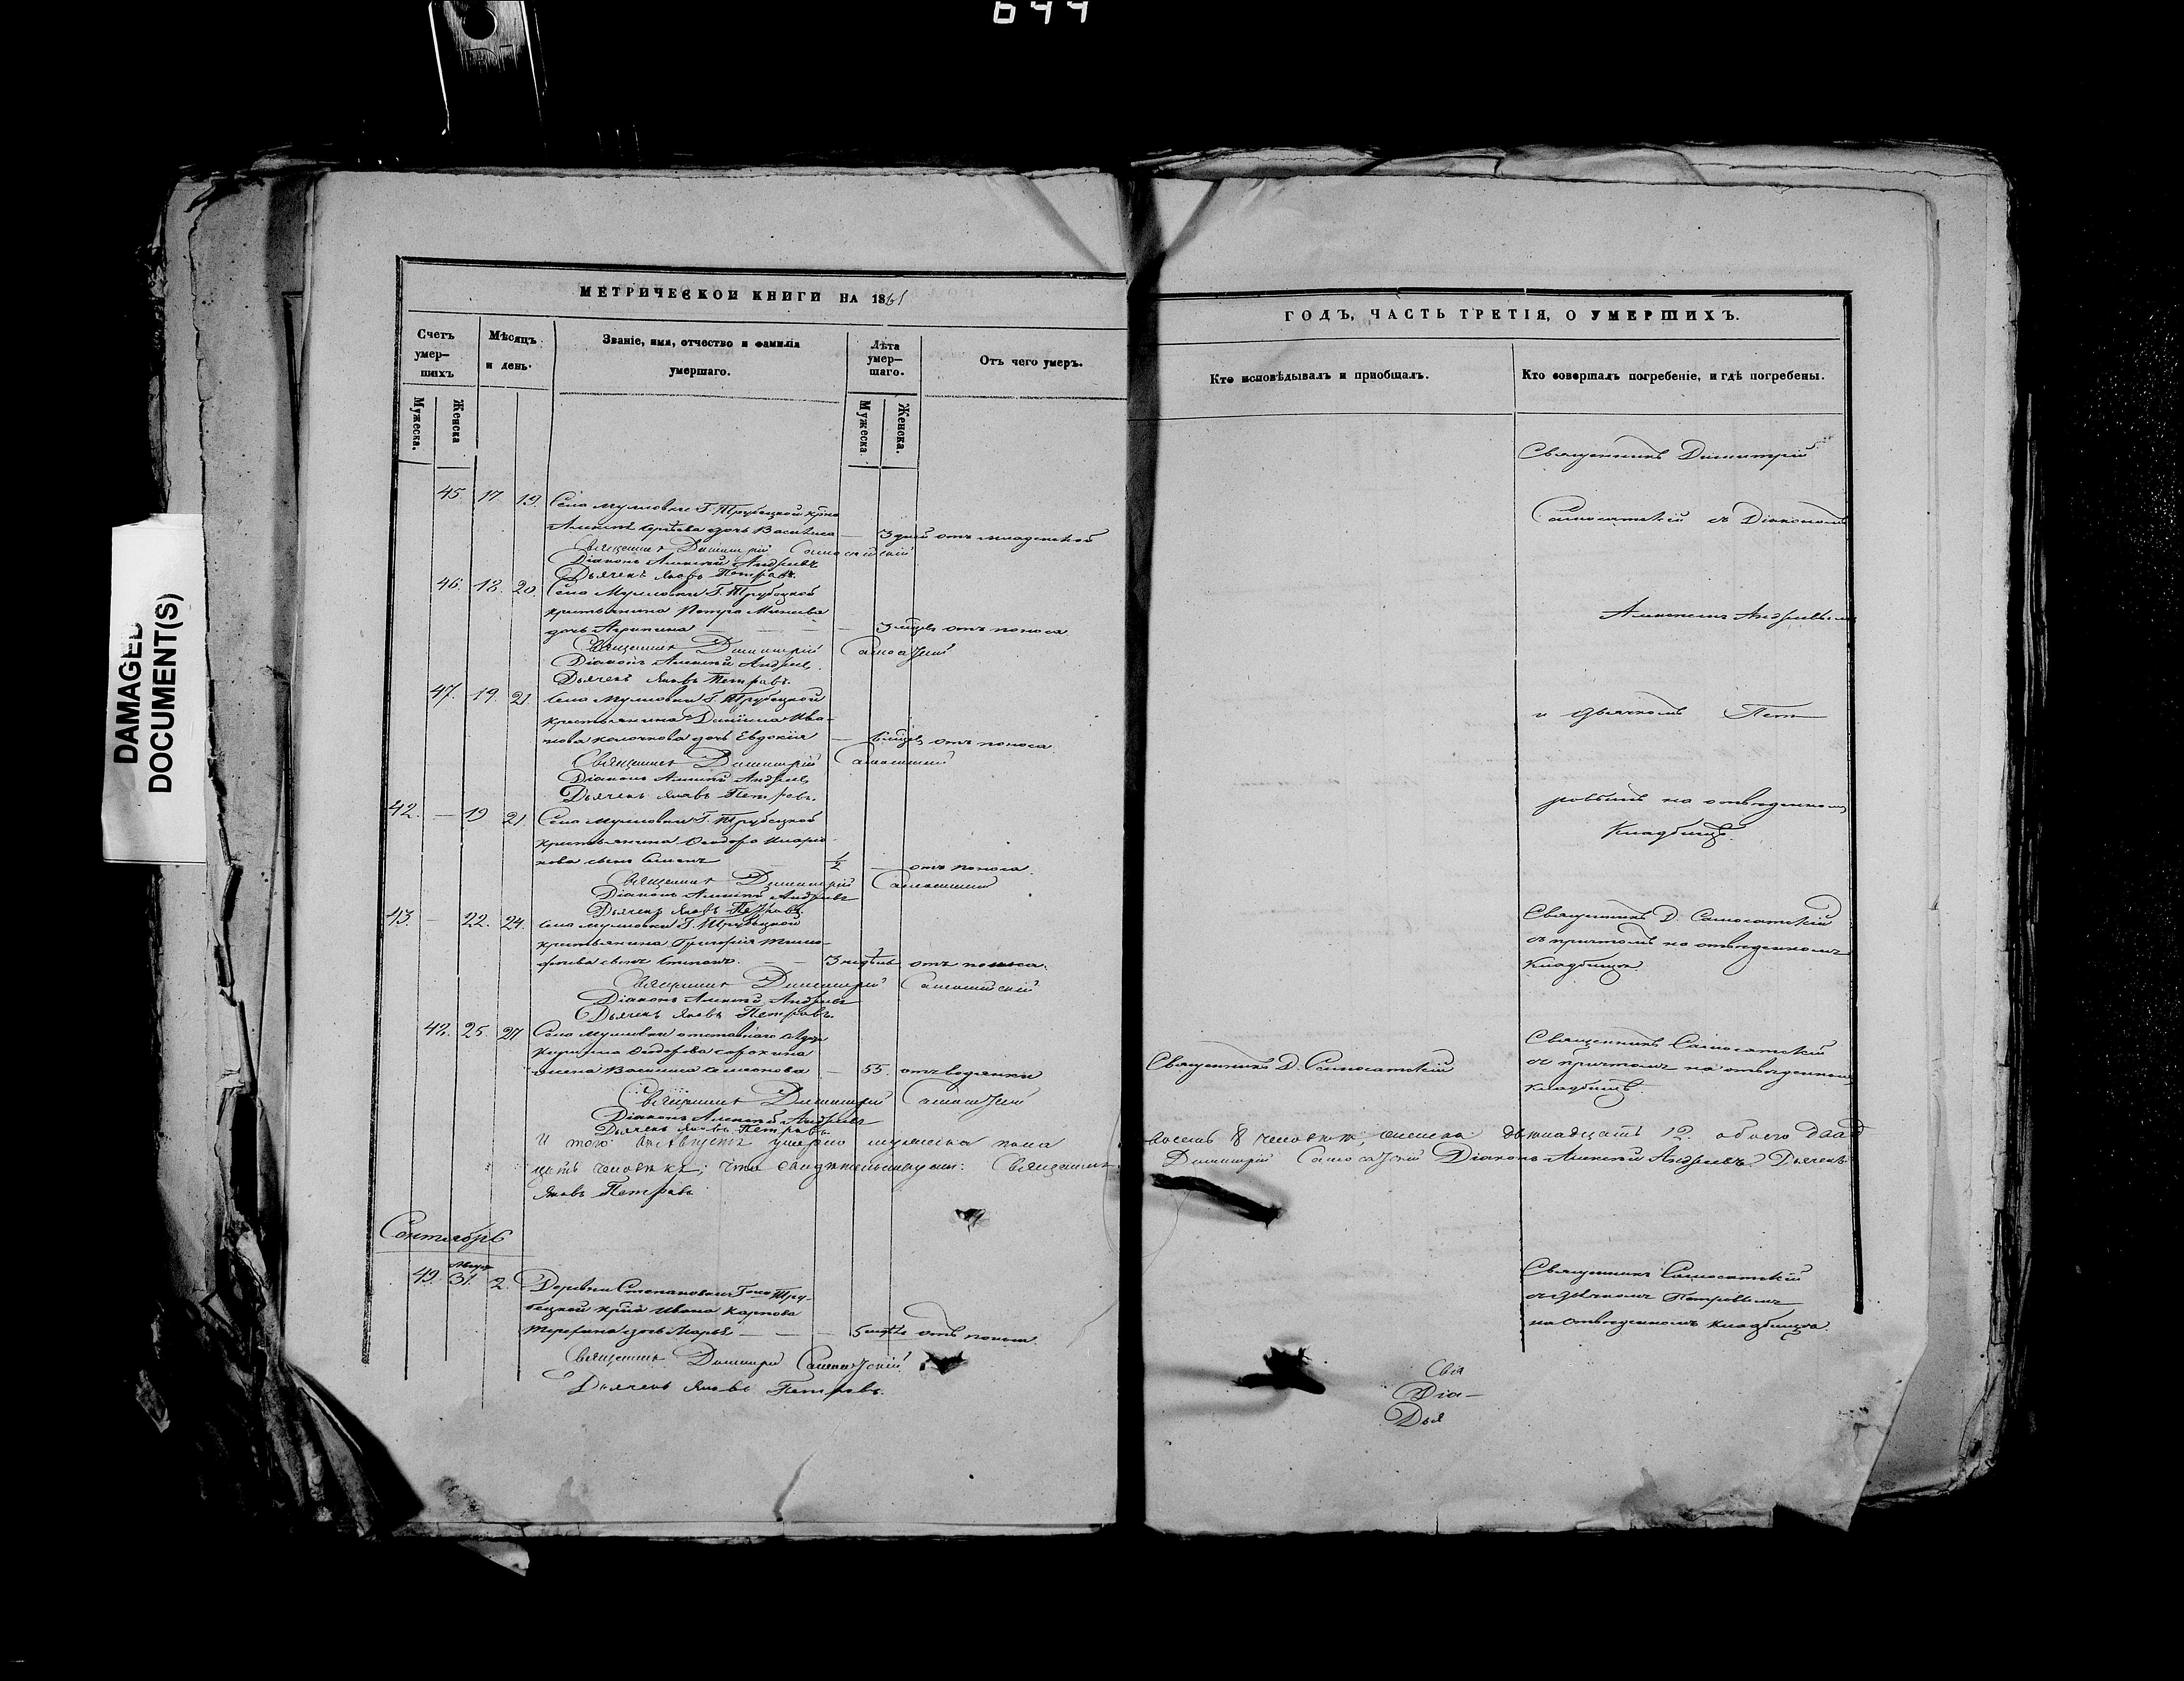 644
DAMAGED
DOCUMENT(S)
МЕТРИЧЕСКОЙ КНИГИ НА 1861
Счетъ умер-шихъ
Мѣсяцъ и день.
Званіе, имя, отчество и фамилія умершаго.
Лѣта умер-шаго.
Отъ чего умеръ.
Мужеска. Женска
Мужеска Женска.
45. 17 19. Села Муловки Г. Трубецкой
дочь Васса 3 дней отъ младенской
Священникъ Димитрій Самосатскій
Діаконъ Алексѣй Андреевъ
Дьячекъ Яковъ Петровъ.
46. 18. 20. Села Муловки Г. Трубецкой
крестьянина Петра
дочь Агрипина — 3 мѣсяц отъ поноса
Священникъ Димитрій Самосатскій
Діаконъ Алексѣй Андреев
Дьячекъ Яковъ Петровъ.
47. 19. 21. Села Муловки Г. Трубецкой
крестьянина Даніила Ива-
нова дочь Евдокія — отъ поноса
Священникъ Димитрій Самосатскій
Діаконъ Алексѣй Андреев
Дьячекъ Яковъ Петровъ.
42. — 19 21. Села Муловки Г. Трубецкой
крестьянина Ѳеодора Иларіо-
нова сынъ Семенъ 1/2 — отъ поноса.
Священникъ Димитрій Самосатскій
Діаконъ Алексѣй Андреевъ
Дьячекъ Яковъ Петровъ.
43. — 22. 24. Села Муловки Г. Трубецкой
крестьянина Григорія Тимо-
феева сынъ Степанъ. — 3 недѣль отъ поноса.
Священникъ Димитрій Самосатскій
Діаконъ Алексѣй Андреевъ
Дьячекъ Яковъ Петровъ.
48. 25. 27 Села Муловки отставнаго
Ѳеодорова Сорокина
жена Василиса Семенова — 55. отъ водянки
Священникъ Димитрій Самосатскій
Діаконъ Алексѣй Андреевъ
Дьячекъ Яковъ Петровъ.
И того въ Августѣ умерло мужеска пола
цать человѣкъ; что свидѣтельствуемъ: Священникъ
Яковъ Петровъ
Сентябрь
49. 31. 2. Деревни Степановки Г-жи Тру-
бецкой Ивана Карпова
дочь Марья — — отъ поноса
Священникъ Димитрій Самосатскій
Дьячекъ Яковъ Петровъ.
ГОДЪ, ЧАСТЬ ТРЕТІЯ, О УМЕРШИХЪ.
Кто исповѣдывалъ и пріобщалъ.
Кто совершалъ погребеніе, и гдѣ погребены.
Священникъ Димитрій
Самосатскій съ Діакономъ
Алексѣемъ Андреевымъ
и дьячкомъ Пет-
ровымъ на отведенномъ
Кладбищѣ.
Священникъ Д. Самосатскій
съ причтомъ на отведенномъ
Кладбищѣ
Священникъ Д. Самосатскій
Священникъ Самосатскій
съ причтомъ на отведенномъ
кладбищѣ.
восемь 8 человѣкъ, женска двенадцать 12. обоего двад
Димитрій Самосатскій Діаконъ Алексѣй Андреевъ. Дьячекъ
Священникъ Самосатскій
съ дьячкомъ Петровымъ
на отведенномъ кладбищѣ.
Свя
Діа-
Дья